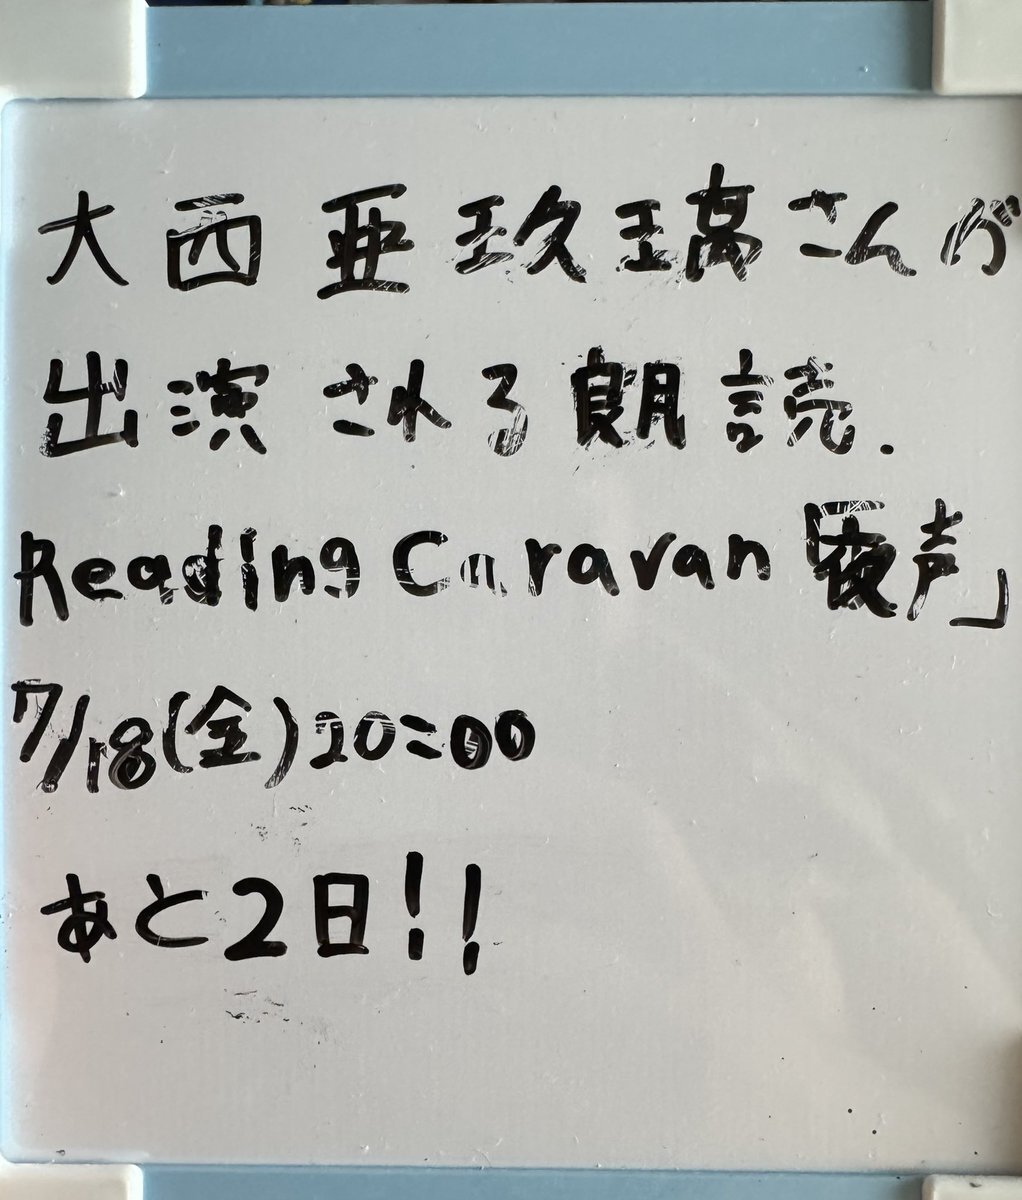 大西亜玖璃さんが
出演される朗読.
Reading Caravan「夜声」
7/18(金)20:00
あと2日!!